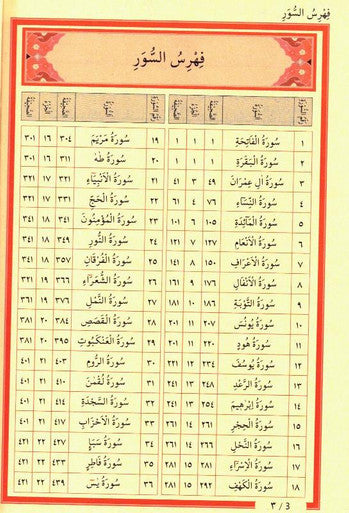 فِهْرِسُ السُّوَرِ
فِهْرِسُ السُّوَرِ
رقم السورة السورة الصحيفة الجزء الصحيفة رقم السورة السورة الصحيفة الجزء الصحيفة
١ سُورَةُ الْفَاتِحَةِ ١ ١ ١ ١٩ سُورَةُ مَرْيَمَ ٣٠٤ ١٦ ٣٠١
٢ سُورَةُ الْبَقَرَةِ ١ ١ ١ ٢٠ سُورَةُ طٰهٰ ٣١١ ١٦ ٣٠١
٣ سُورَةُ اٰلِ عِمْرَانَ ٤٩ ٣ ٤١ ٢١ سُورَةُ الْأَنْبِيَاءِ ٣٢١ ١٧ ٣٢١
٤ سُورَةُ النِّسَاءِ ٧٦ ٤ ٦١ ٢٢ سُورَةُ الْحَجِّ ٣٣١ ١٧ ٣٢١
٥ سُورَةُ الْمَائِدَةِ ١٠٥ ٦ ١٠١ ٢٣ سُورَةُ الْمُؤْمِنُونَ ٣٤١ ١٨ ٣٤١
٦ سُورَةُ الْأَنْعَامِ ١٢٧ ٧ ١٢١ ٢٤ سُورَةُ النُّورِ ٣٤٩ ١٨ ٣٤١
٧ سُورَةُ الْأَعْرَافِ ١٥٠ ٨ ١٤١ ٢٥ سُورَةُ الْفُرْقَانِ ٣٥٧ ١٨ ٣٤١
٨ سُورَةُ الْأَنْفَالِ ١٧٦ ٩ ١٦١ ٢٦ سُورَةُ الشُّعَرَاءِ ٣٦٦ ١٩
٩ سُورَةُ التَّوْبَةِ ١٨٦ ١٠ ١٨١ ٢٧ سُورَةُ النَّمْلِ ٣٧٦ ١٩ ٣٦١
١٠ سُورَةُ يُونُسَ ٢٠٧ ١١ ٢٠١ ٢٨ سُورَةُ الْقَصَصِ ٣٨٤ ٢٠ ٣٨١
١١ سُورَةُ هُودٍ ٢٢٠ ١١ ٢٠١ ٢٩ سُورَةُ الْعَنْكَبُوتِ ٣٩٥ ٢٠
١٢ سُورَةُ يُوسُفَ ٢٣٤ ١٢ ٢٢١ ٣٠ سُورَةُ الرُّومِ ٤٠٣ ٢١ ٤٠١
١٣ سُورَةُ الرَّعْدِ ٢٤٨ ١٣ ٢٤١ ٣١ سُورَةُ لُقْمٰنَ ٤١٠ ٢١ ٤٠١
١٤ سُورَةُ إِبْرٰهِيمَ ٢٥٤ ١٣ ٢٤١ ٣٢ سُورَةُ السَّجْدَةِ ٤١٤ ٢١ ٤٠١
١٥ سُورَةُ الْحِجْرِ ٢٦١ ٢٦١ ٣٣ سُورَةُ الْأَحْزَابِ ٤١٧ ٢١ ٤٠١
١٦ سُورَةُ النَّحْلِ ٢٦٦ ١٤ ٢٦١ ٣٤ سُورَةُ سَبَإٍ ٤٢٧ ٢٢ ٤٢١
١٧ سُورَةُ الْإِسْرَاءِ ٢٨١ ١٥ ٢٨١ ٣٥ سُورَةُ فَاطِرٍ ٤٣٣ ٢٢ ٤٢١
١٨ سُورَةُ الْكَهْفِ ٢٩٢ ١٥ ٢٨١ ٣٦ سُورَةُ يٰسٓ ٤٣٩ ٢٢ ٤٢١
٣ / 3